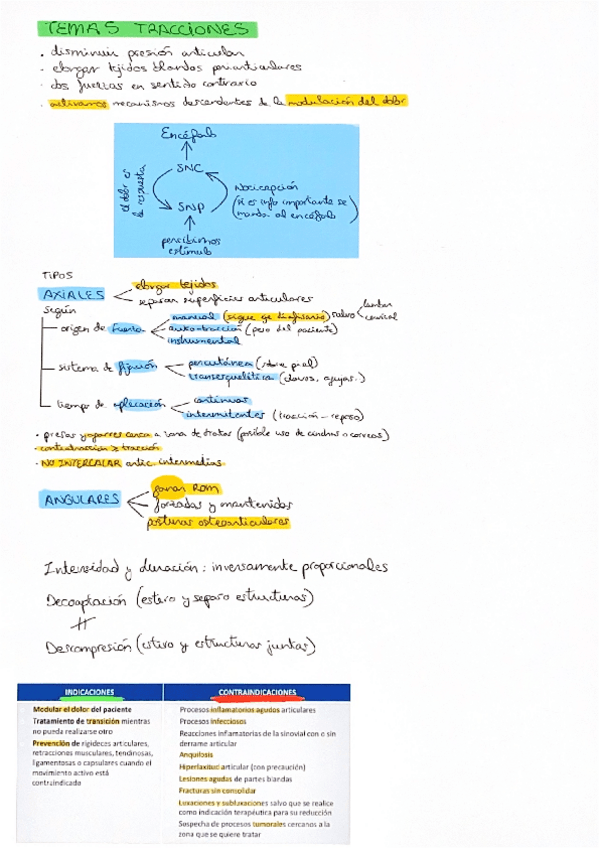 TEMA 5 TRACCIONES
· disminuir presión articular
· elongar tejidos blandos periarticulares
· dos fuerzas en sentido contrario
· activamos mecanismos descendentes de la modulación del dolor
Encéfalo
SNC
el dolor es la respuesta
Nocicepción
(si es info importante se manda al encéfalo)
SNP
percibimos
estímulo
TIPOS
AXIALES
elongar tejidos
separan superficies articulares
según
origen de fuerza
manual (sigue eje diafisario) salvo
lumbar
cervical
autotracción (peso del paciente)
instrumental
sistema de fijación
percutánea (sobre piel)
transesquelética (clavos, agujas..)
tiempo de aplicación
continuas
intermitentes (tracción - reposo)
· presas y agarres cerca a zona de tratar (posible uso de cinchas o correas)
· contratracción ≥ tracción
· NO INTERCALAR artic. intermedias
ANGULARES
ganar ROM
forzadas y mantenidas
posturas osteoarticulares
Intensidad y duración: inversamente proporcionales
Decoaptación (estiro y separo estructuras)
≠
Descompresión (estiro y estructuras juntas)
INDICACIONES
Modular el dolor del paciente
Tratamiento de transición mientras
no pueda realizarse otro
Prevención de rigideces articulares,
retracciones musculares, tendinosas,
ligamentosas o capsulares cuando el
movimiento activo está
contraindicado
CONTRAINDICACIONES
Procesos inflamatorios agudos articulares
Procesos infecciosos
Reacciones inflamatorias de la sinovial con o sin
derrame articular
Anquilosis
Hiperlaxitud articular (con precaución)
Lesiones agudas de partes blandas
Fracturas sin consolidar
Luxaciones y subluxaciones salvo que se realice
como indicación terapéutica para su reducción
Sospecha de procesos tumorales cercanos a la
zona que se quiere tratar